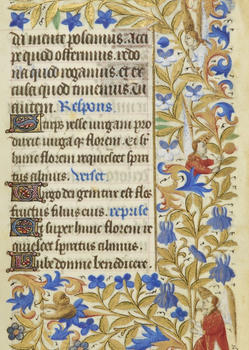 di mente poscimus. acci
pe quod offerimus. redo
na quod rogamus. et ex
cusa quod timemus. Tu
autem. Respons
Stirps yesse uirgam pro
duxit uirga que florem. Et si
hunc florem requiescet spi
ritus almus. Verset
Virgo dei genitrix est flos
fructus filius eius. reprise
Et super hunc florem re
quiescit spiritus almus.
Iube domne benedicere.